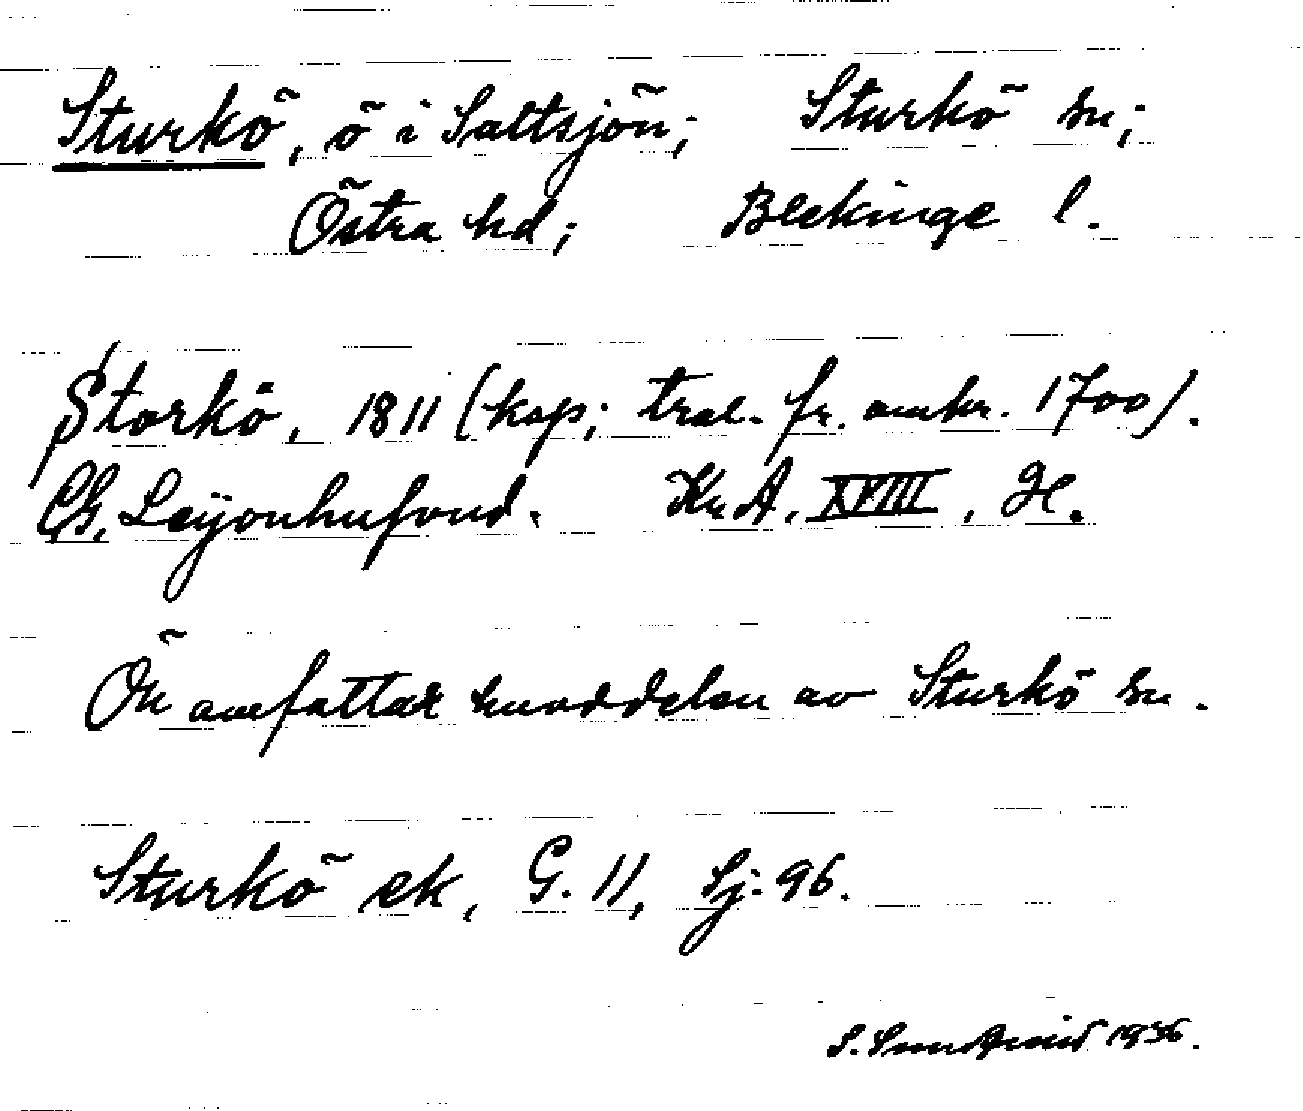 Sturkö, ö i Saltsjön; Sturkö sn;
Östra hd; Blekinge l.
Storkö, 1811 (kop; trol. fr. omkr. 1700).
Ch. Leijonhufvud. Kr.A. XVIII, H.
Ön omfattar huvuddelen av Sturkö sn.
Sturkö ek, G. 11, Sj: 96.
S. 1936.